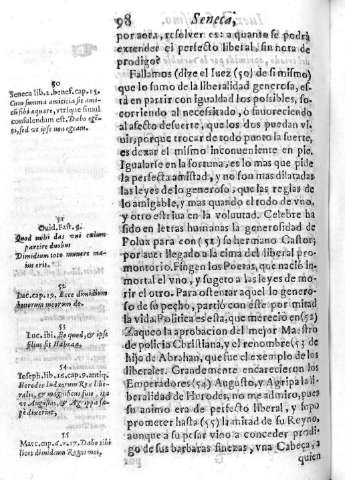 98 Seneca,
por aora, resolver es: a quanto se podrà
extender el perfecto liberal, sin nota de
prodigo?
Fallamos (dize el Iuez (50) de si mismo)
que lo sumo de la liberalidad generosa, es-
tà en partir con igualdad los possibles, so-
corriendo al necesitado, ò favoreciendo
al afecto de suerte, que los dos puedan vi-
uir, porque trocar de todo punto la suerte,
es dexar el mismo inconueniente en pie.
Igualarse en la fortuna, es lo mas que pide
la perfecta amistad, y no son mas dilatadas
las leyes de lo generoso, que las reglas de
lo amigable, y mas quando el todo de vno,
y otro estriua en la voluntad. Celebre ha
sido en letras humanas la generosidad de
Polux para con (51) su hermano Castor,
por auer llegado a la cima del liberal pro-
montorio. Fingen los Poetas, que naciò in-
mortal el vno, y sugeto a las leyes de mo-
rir el otro. Para ostentar aquel lo genero-
so de su pecho, partiò con este por mitad
la vida. Politica es esta, que mereciò en (52)
Zaqueo la aprobacion del mejor Maestro
de policia Christiana, y el renombre (53 de
hijo de Abrahan, que fue el exemplo de los
liberales. Grandemente encarecieron los
Emperadores (54) Augusto, y Agripa la li-
beralidad de Herodes, no me admiro, pues
su animo era de perfecto liberal, y supo
prometer hasta (55) la mitad de su Reyno,
aunque a pesar vino a conceder prodi-
go de sus barbaras finezas, vna Cabeça, a
quien
50
Seneca lib. 2. benef. cap. 15.
Cum summa amicitiæ sit ami-
cum sibi æquare, vtrique simul
consulendum est. Dabo ege-
ti, sed vt ipse non egeam.
51
Ouid. Fast. 5.
Quod mihi das vni cœlum
partire duobus
Dimidium toto munere ma-
ius erit.
52
Luc. cap. 19. Ecce dimidium
bonorum meorum do.
53
Luc. ibi. Eo quod, & ipse
filius sit Habrae.
54
Ioseph. lib. 16. cap. 9. antiq.
55
Marc. cap. 6. v. 17. Dabo tibi
licet dimidium Regni mei,